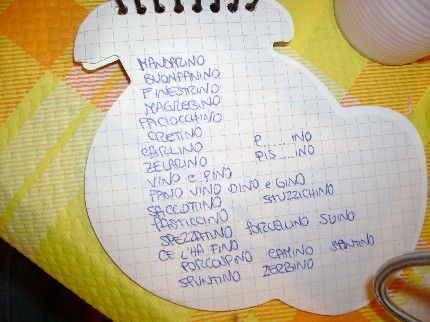 MANDARINO
BUONPANINO
FINESTRINO
MAGREBINO
PACIOCCHINO
CRETINO
CARLINO P......INO
ZELARINO PIS....INO
VINO E PINO
PANO VINO DINO e GINO
SACCOTTINO STUZZICHINO
PASTICCINO
SPEZZATINO PORCELLINO SUINO
CE L'HA FINO
PORCOSPINO CAMINO SANTINO
SPUNTINO ZERBINO